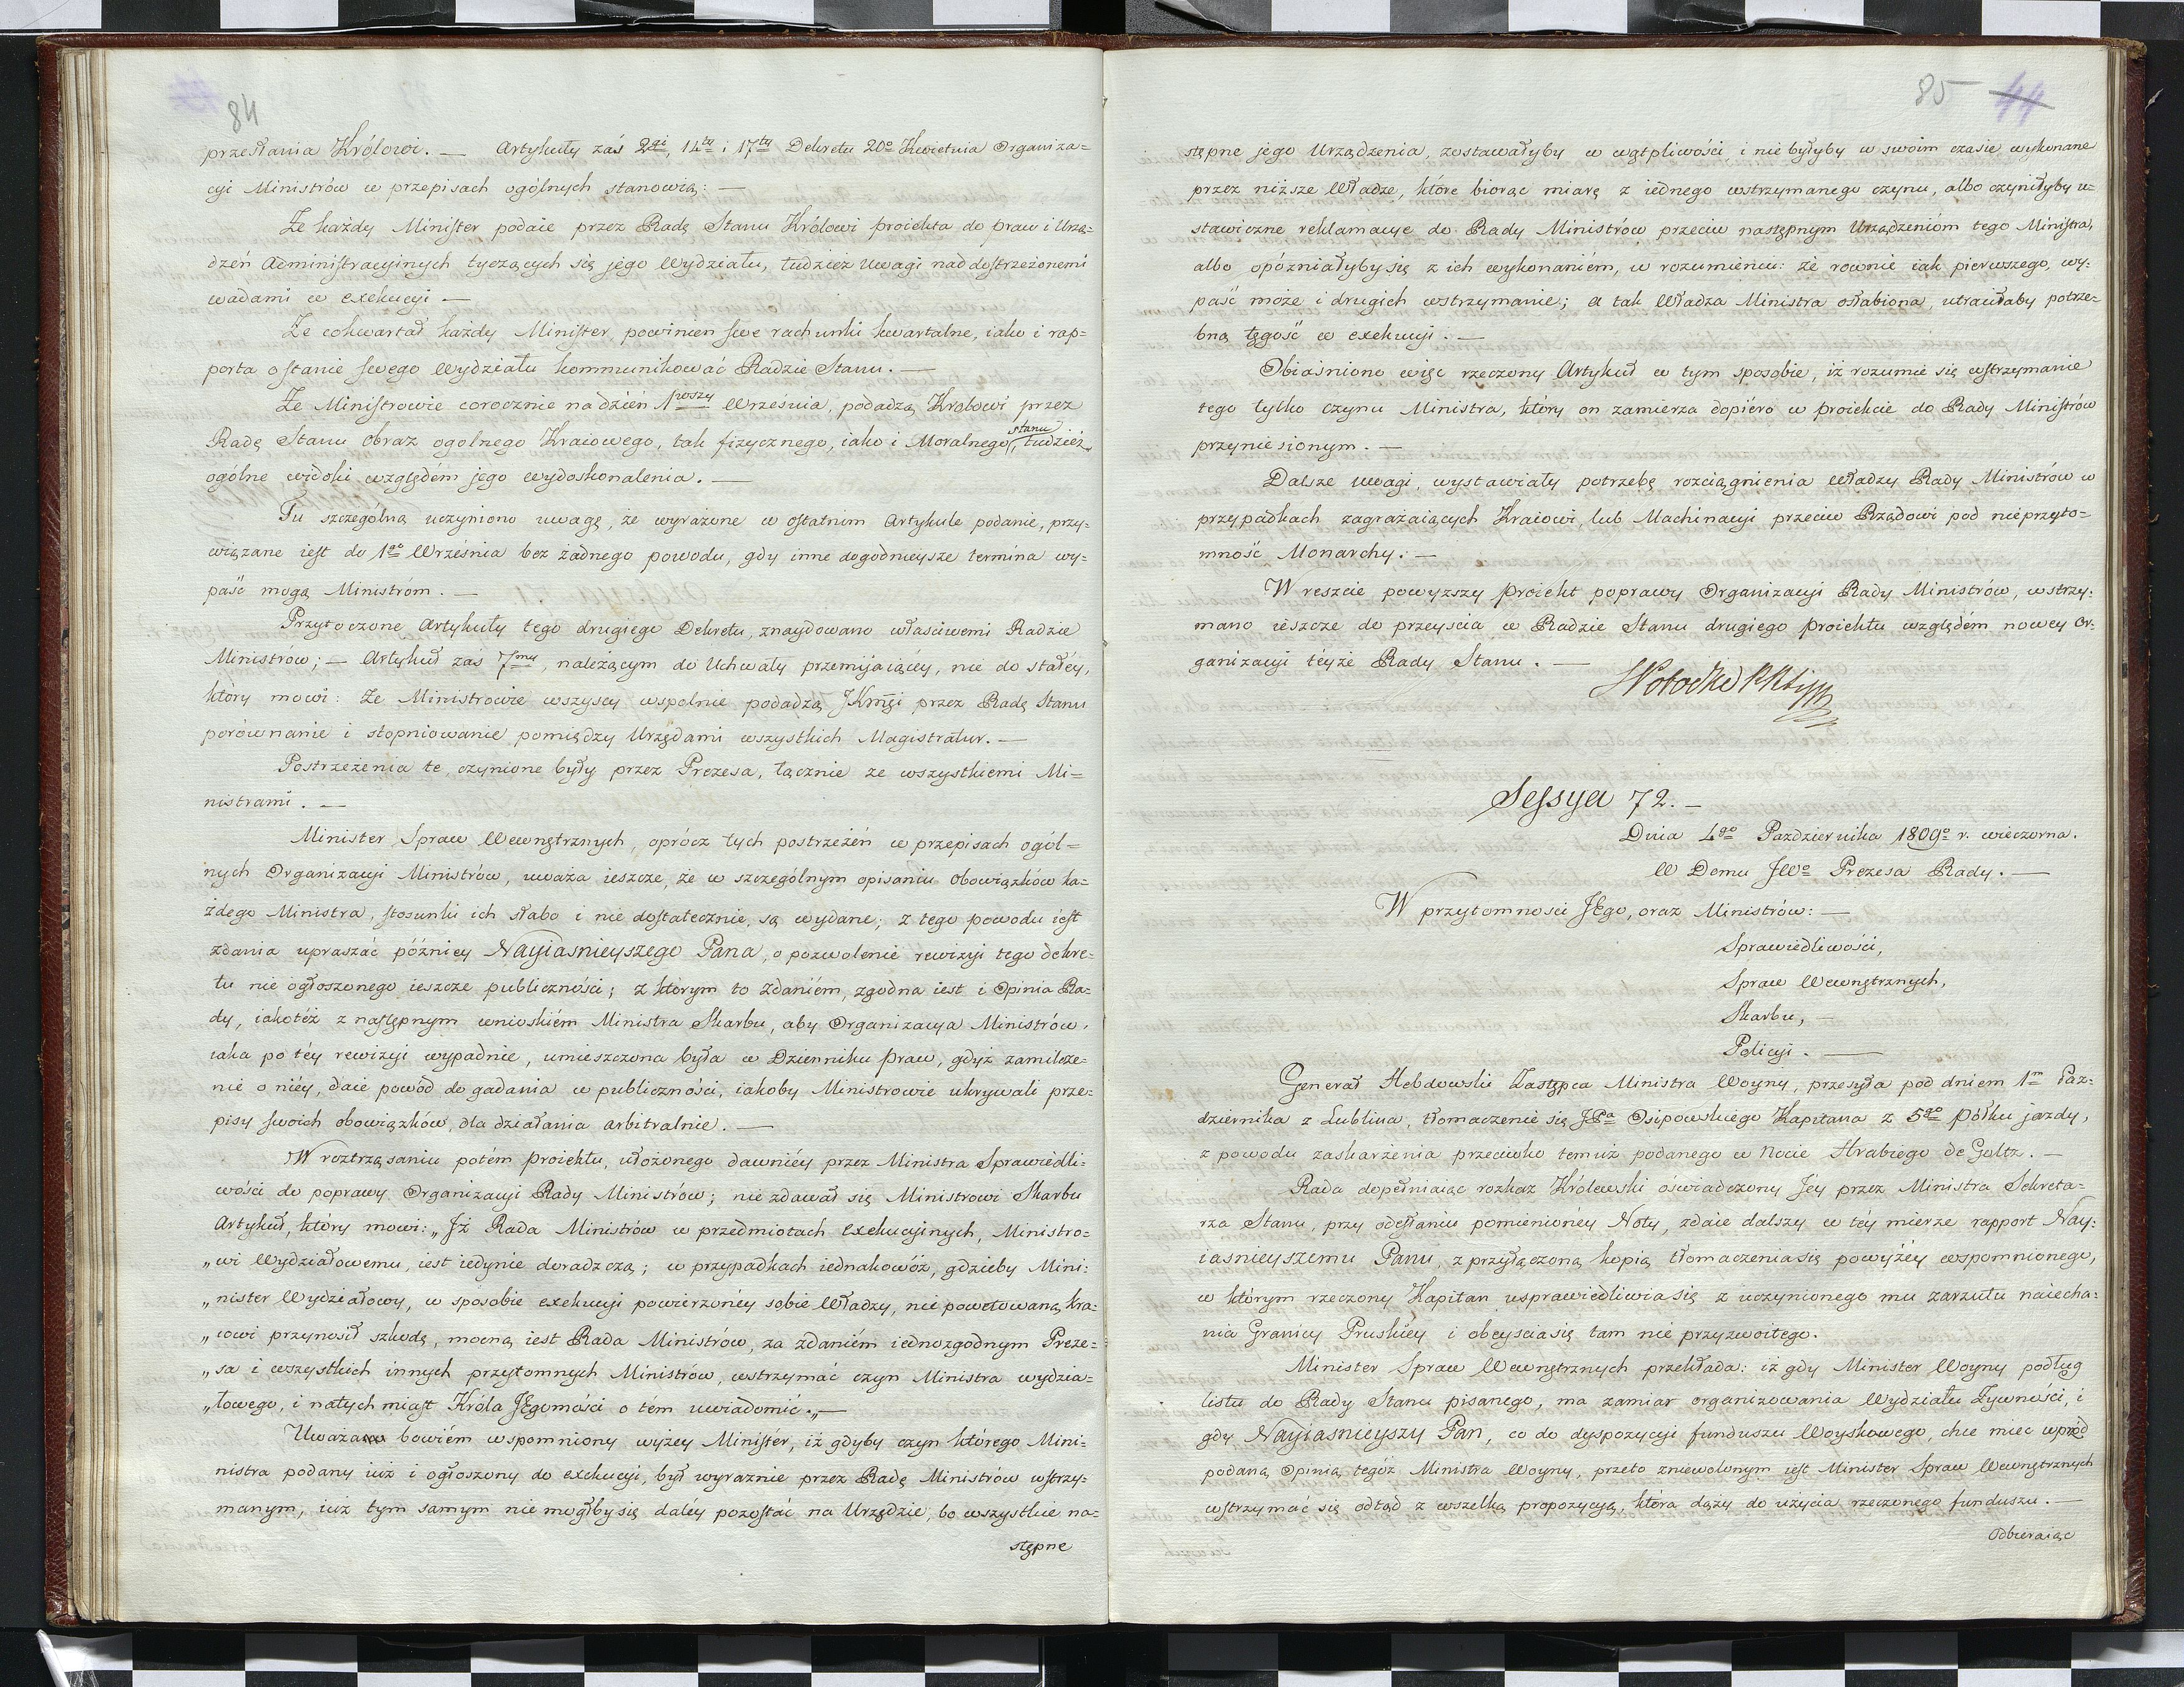 84
przesłania Królowi. — Artykuły zaś 2gi, 14ty i 17ty Dekretu 20o Kwietnia Organiza=
cyi Ministrów w przepisach ogólnych stanowią: —
Że każdy Minister podaie przez Radę Stanu Królowi proiekta do praw i Urzą=
dzeń Administracyinych tyczących się jego Wydziału, tudzież Uwagi nad dostrzeżonemi
wadami w exekucyi —
Że cokwartał każdy Minister, powinien swe rachunki kwartalne, iako i rap=
porta o stanie swego Wydziału kommunikować Radzie Stanu. —
Że Ministrowie corocznie na dzień 1wszy Września, podadzą Krolowi przez
stanu
Radę Stanu Obraz ogolnego Kraiowego, tak fizycznego, iako i Moralnego, tudzież
ogólne widoki względem jego wydoskonalenia. —
Tu szczególną uczyniono uwagę, że wyrażone w ostatnim Artykule podanie, przy=
wiązane iest do 1go Września bez żadnego powodu, gdy inne dogodnieysze termina wy=
paść mogą Ministróm. —
Przytoczone Artykuły tego drugiego Dekretu, znaydowano właściwemi Radzie
Ministrów; — Artykuł zaś 7my, należącym do Uchwały przemijaiącéy, nie do stałéy,
który mowi: Że Ministrowie wszyscy wspolnie podadzą JKmci przez Radę Stanu
porównanie i stopniowanie pomiędzy Urzędami wszystkich Magistratur. —
Postrzeżenia te, czynione były przez Prezesa, łącznie ze wszystkiemi Mi=
nistrami. —
Minister Spraw Wewnętrznych, oprócz tych postrzeżeń w przepisach ogól=
nych Organizacyi Ministrów, uważa ieszcze, że w szczególnym opisaniu Obowiązków ka=
żdego Ministra, stosunki ich słabo i nie dostatecznie, są wydane; z tego powodu iest
zdania upraszać późniey Nayiasnieyszego Pana, o pozwolenie rewizyi tego dekre=
tu nie ogłoszonego ieszcze publiczności; z którym to zdaniém, zgodna iest i Opinia Ra=
dy, iakoteż z następnym wnioskiém Ministra Skarbu, aby Organizacya Ministrów,
iaka po téy rewizyi wypadnie, umieszczona była w Dzienniku praw, gdyż zamilcze=
nie o niéy, daie powód do gadania w publiczności, iakoby Ministrowie ukrywali prze=
pisy swoich obowiązków, dla działania arbitralnie. —
W roztrząsaniu potém proiektu, ułożonego dawniéy przez Ministra Sprawiedli=
wości do poprawy Organizacyi Rady Ministrów; nie zdawał się Ministrowi Skarbu
Artykuł, który mowi: „Jż Rada Ministrów w przedmiotach exekucyinych, Ministro=
„wi Wydziałowemu, iest iedynie doradczą; w przypadkach iednakowóż, gdzieby Mini=
„nister Wydziałowy, w sposobie exekucyi powierzonéy sobie Władzy, nie powetowaną kra=
„iowi przynosił szkodę, mocną iest Rada Ministrów, za zdaniém iednozgodnym Preze=
„sa i wszystkich innych przytomnych Ministrów, wstrzymać czyn Ministra wydzia=
„łowego, i natychmiast Króla JEgomości o tém uwiadomić.„ —
Uważa bowiém wspomniony wyżey Minister, iż gdyby czyn którego Mini=
nistra podany iuż i ogłoszony do exekucyi, był wyraznie przez Radę Ministrów wstrzy=
manym, iuż tym samym nie mogłby się daléy pozostać na Urzędzie, bo wszystkie na=
stępne
85 44
stępne jego Urządzenia, zostawałyby w wątpliwości, i nie byłyby w swoim czasie wykonane
przez niższe Władze, które biorąc miarę z iednego wstrzymanego czynu, albo czyniłyby u=
stawiczne reklamacye do Rady Ministrów przeciw następnym Urządzenióm tego Ministra,
albo opózniałyby się z ich wykonaniém, w rozumieniu: że rownie iak pierwszego, wy=
paść może i drugich wstrzymanie; a tak Władza Ministra osłabiona, utraciłaby potrze=
bną tęgość w exekucyi. —
Obiaśniono więc rzeczony Artykuł w tym sposobie, iż rozumie się wstrzymanie
tego tylko czynu Ministra, który on zamierza dopiéro w proiekcie do Rady Ministrów
przyniesionym. —
Dalsze uwagi, wystawiały potrzebę rozciągnienia Władzy Rady Ministrów w
przypadkach zagrażaiących Kraiowi, lub Machinacyi przeciw Rządowi pod nieprzyto=
mność Monarchy. —
W reszcie powyzszy proiekt poprawy Organizacyi Rady Ministrów, wstrzy=
mano ieszcze do przeyścia w Radzie Stanu drugiego proiektu względem nowey Or=
ganizacyi téyże Rady Stanu. —
Sessya 72. —
Dnia 4go Pazdziernika 1809o r. wieczorna.
W Domu JWo Prezesa Rady. —
W przytomnosci JEgo, oraz Ministrów: —
Sprawiedliwości,
Spraw Wewnętrznych,
Skarbu, —
Policyi. —
Generał Hebdowski Zastępca Ministra Woyny, przesyła pod dniem 1m Paz=
dziernika z Lublina, tłomaczenie się JPa Osipowskiego Kapitana z 5go Półku jazdy,
z powodu zaskarżenia przeciwko temuż podanego w Nocie Hrabiego de Goltz. —
Rada dopełniaiąc rozkaz Królewski oświadczony Jey przez Ministra Sekreta=
rza Stanu, przy odesłaniu pomienionéy Noty, zdaie dalszy w téy mierze rapport Nay=
iasnieyszemu Panu, z przyłączoną kopią tłomaczenia się powyżéy wspomnionego,
w którym rzeczony Kapitan usprawiedliwia się z uczynionego mu zarzutu naiecha=
nia Granicy Pruskiéy i obeyscia się tam nie przyzwoitego.
Minister Spraw Wewnętrznych przekłada: iż gdy Minister Woyny podług
listu do Rady Stanu pisanego, ma zamiar organizowania Wydziału Żywności, i
gdy Nayiasnieyszy Pan, co do dyspozycyi funduszu Woyskowego, chce miec wpród
podaną Opinią tegóż Ministra Woyny, przeto zniewolonym iest Minister Spraw Wewnętrznych
wstrzymać się odtąd z wszelką propozycyą, która dąży do użycia rzeczonego funduszu. —
Odbieraiąc